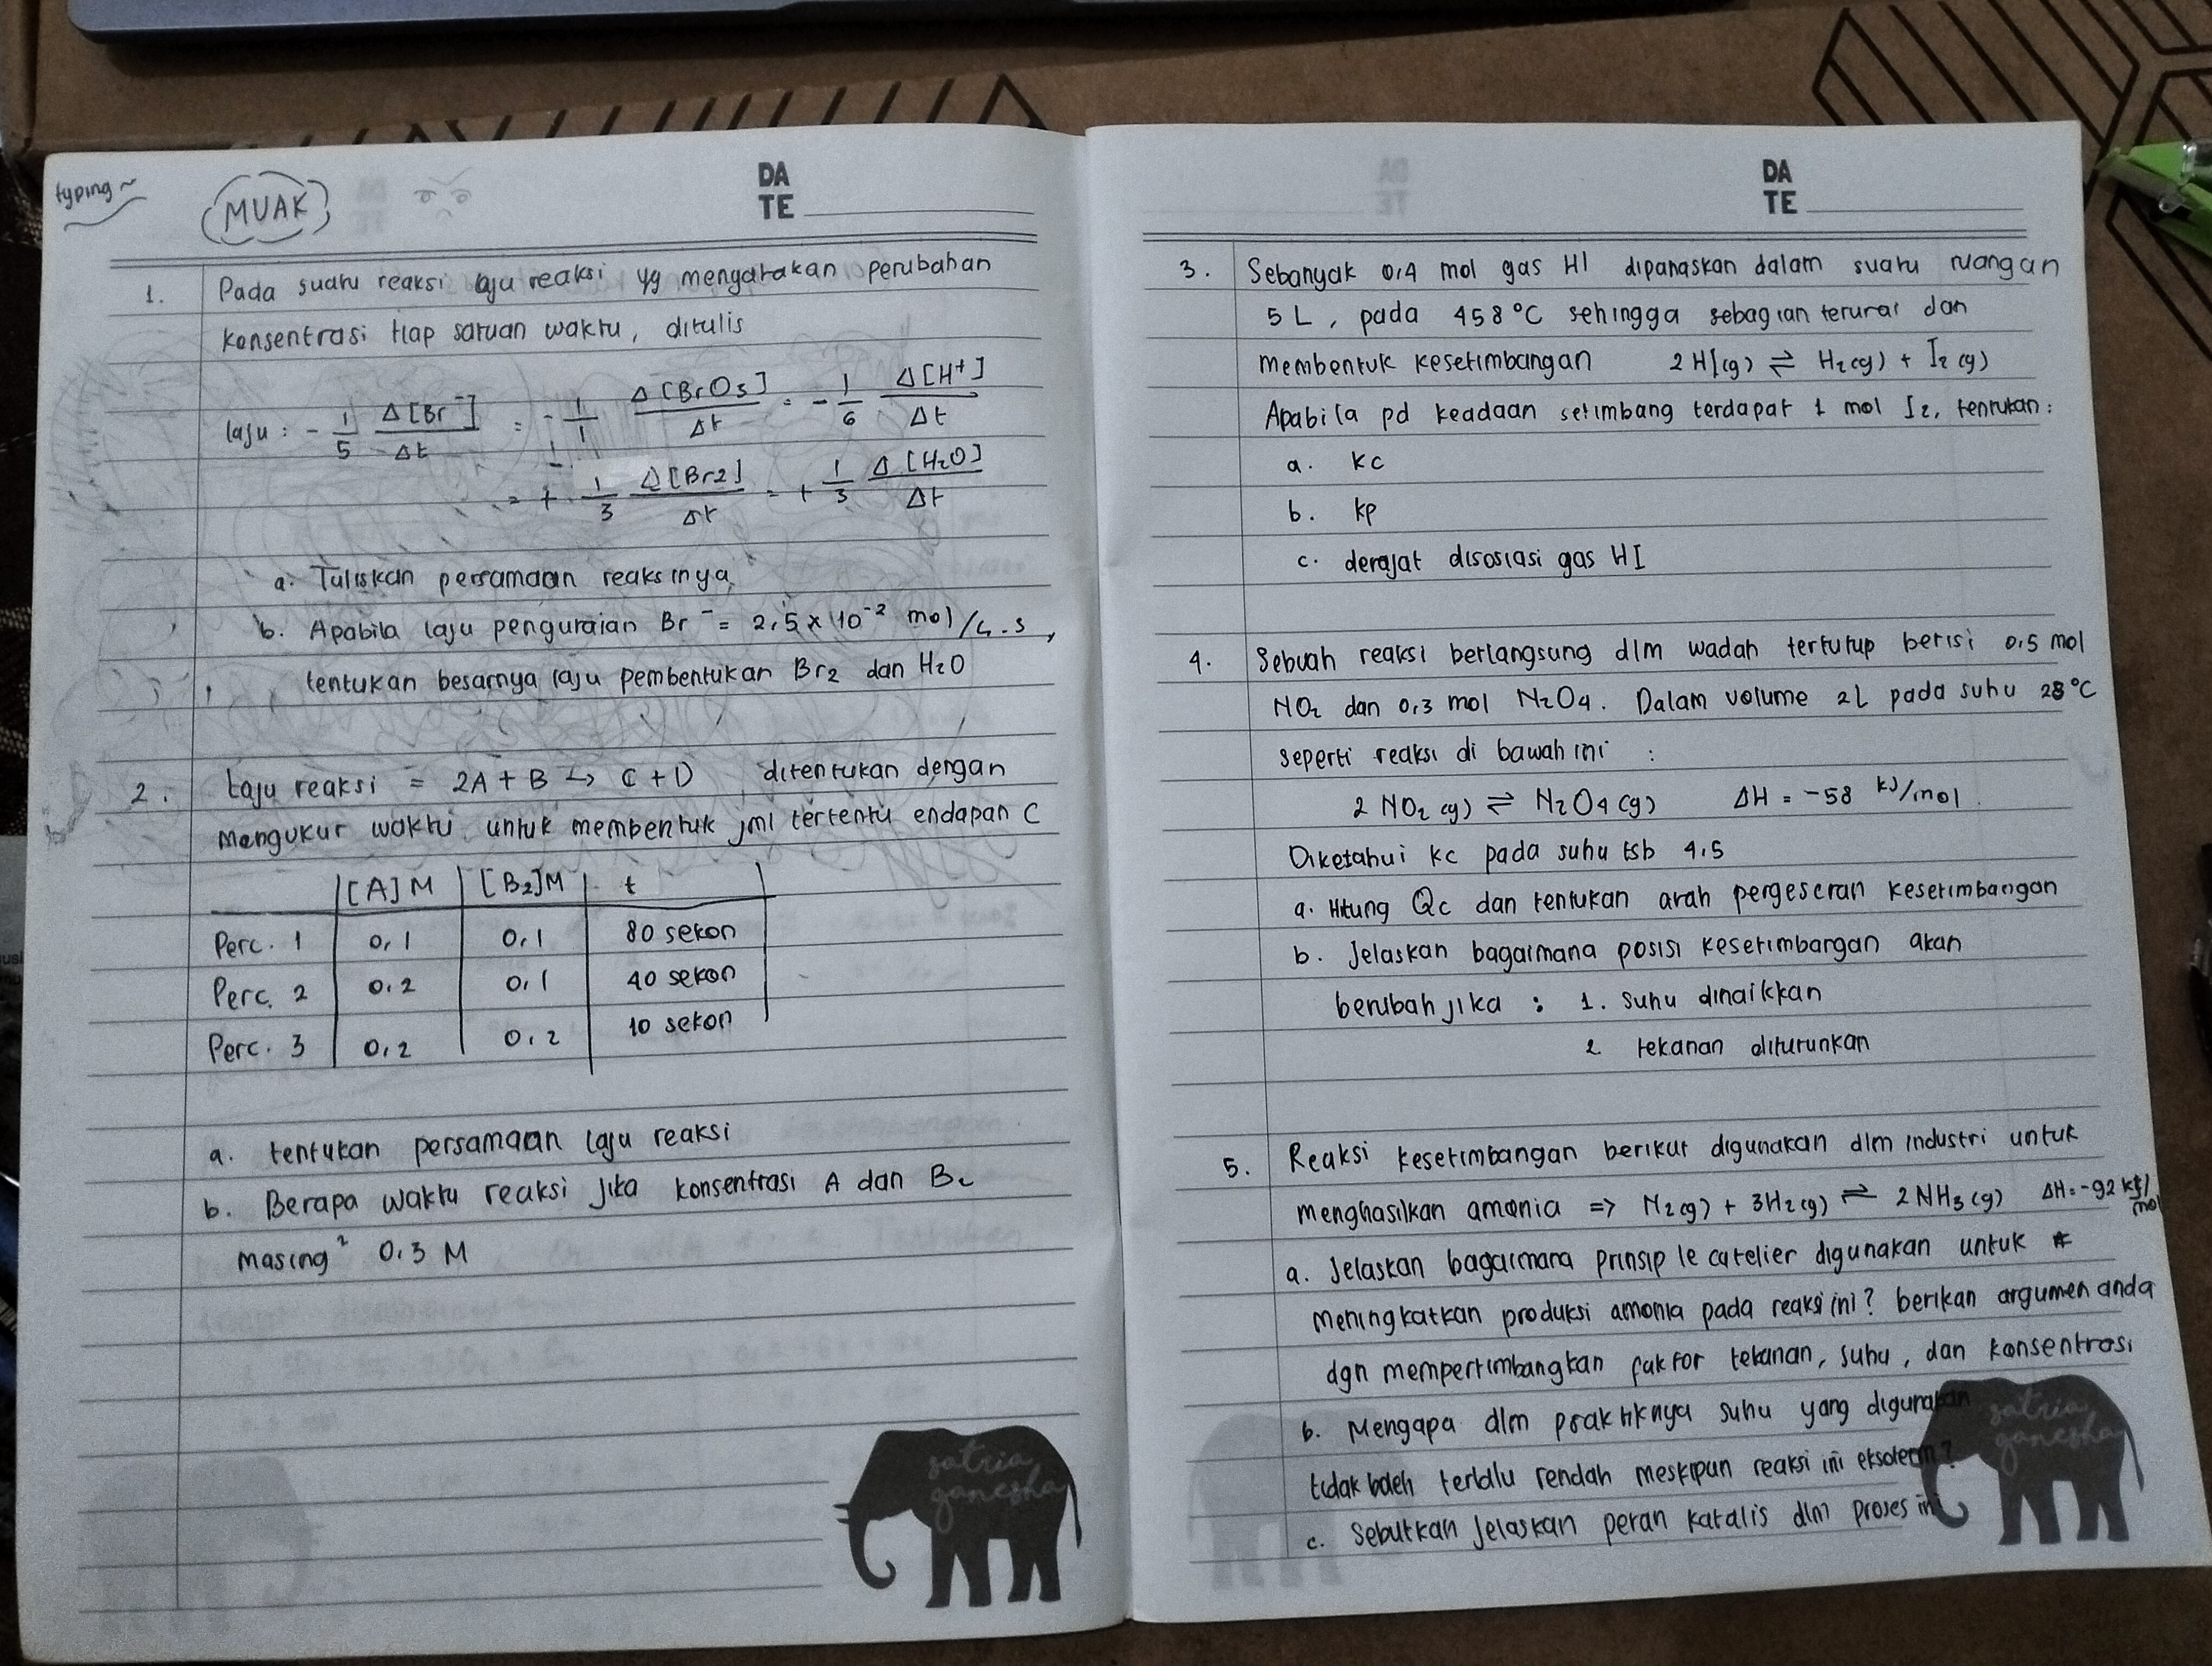 typing~
MUAK
DA
TE
1. Pada suatu reaksi laju reaksi yg mengatakan perubahan
konsentrasi tiap satuan waktu, ditulis
laju : - 1/5 Δ[Br⁻]/Δt = - 1/1 Δ[BrO3]/Δt = - 1/6 Δ[H+]/Δt
= + 1/3 Δ[Br2]/Δt = + 1/3 Δ[H2O]/Δt
a. Tuliskan persamaan reaksinya
b. Apabila laju penguraian Br⁻ = 2,5 × 10⁻² mol/L.s,
tentukan besarnya laju pembentukan Br2 dan H2O
2. Laju reaksi = 2A + B → C + D ditentukan dengan
Mengukur waktu untuk membentuk jml tertentu endapan C
[A]M [B2]M t
Perc. 1 0,1 0,1 80 sekon
Perc. 2 0,2 0,1 40 sekon
Perc. 3 0,2 0,2 10 sekon
a. tentukan persamaan laju reaksi
b. Berapa waktu reaksi jika konsentrasi A dan B2
masing² 0,3 M
satria
ganesha
DA
TE
3. Sebanyak 0,4 mol gas HI dipanaskan dalam suatu ruangan
5 L, pada 458 °C sehingga sebagian terurai dan
membentuk kesetimbangan 2 HI(g) ⇌ H2(g) + I2(g)
Apabila pd keadaan setimbang terdapat 1 mol I2, tentukan:
a. kc
b. kp
c. derajat disosiasi gas HI
4. Sebuah reaksi berlangsung dlm wadah tertutup berisi 0,5 mol
NO2 dan 0,3 mol N2O4. Dalam volume 2L pada suhu 28°C
seperti reaksi di bawah ini :
2 NO2 (g) ⇌ N2O4 (g) ΔH = -58 kJ/mol
Diketahui kc pada suhu tsb 4,5
a. Hitung Qc dan tentukan arah pergeseran kesetimbangan
b. Jelaskan bagaimana posisi kesetimbangan akan
berubah jika : 1. suhu dinaikkan
2. tekanan diturunkan
5. Reaksi kesetimbangan berikut digunakan dlm industri untuk
menghasilkan amonia => N2(g) + 3H2(g) ⇌ 2 NH3 (g) ΔH = -92 kJ/mol
a. Jelaskan bagaimana prinsip le catelier digunakan untuk
meningkatkan produksi amonia pada reaksi ini? berikan argumen anda
dgn mempertimbangkan faktor tekanan, suhu, dan konsentrasi
b. Mengapa dlm praktiknya suhu yang digunakan
tidak boleh terlalu rendah meskipun reaksi ini eksoterm?
c. Sebutkan jelaskan peran katalis dlm proses ini
satria
ganesha